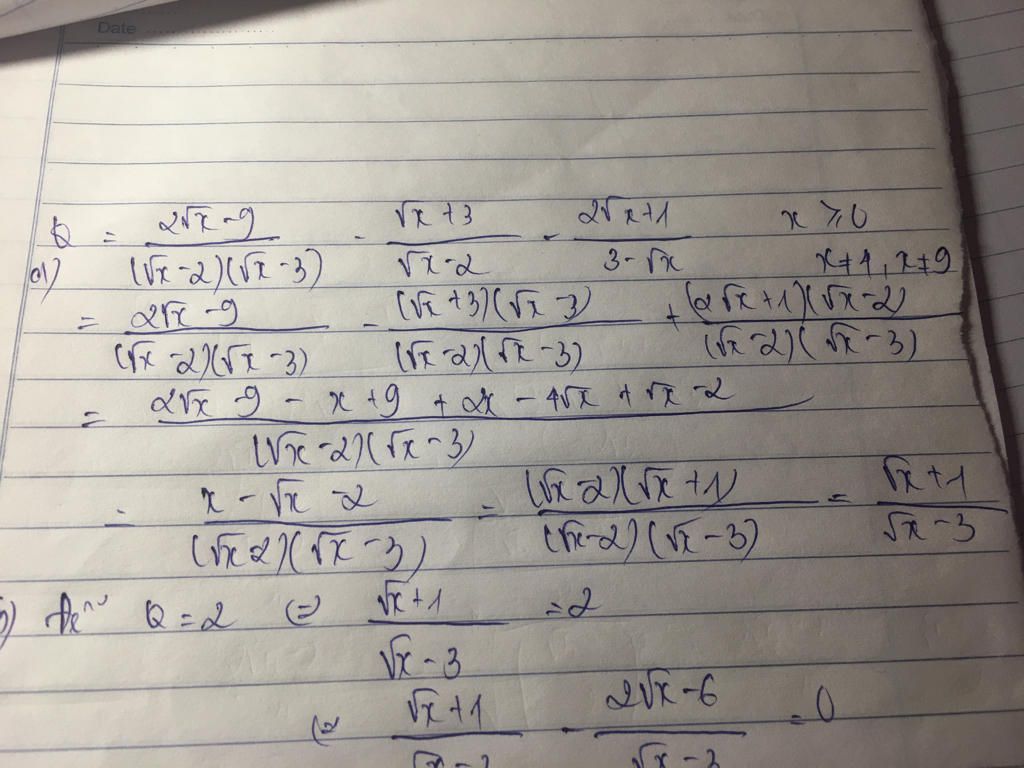 Date
Q = (2√x - 9)/((√x - 2)(√x - 3)) - (√x + 3)/(√x - 2) - (2√x + 1)/(3 - √x) x ⩾ 0
a) x ≠ 4, x ≠ 9
= (2√x - 9)/((√x - 2)(√x - 3)) - ((√x + 3)(√x - 3))/((√x - 2)(√x - 3)) + ((2√x + 1)(√x - 2))/((√x - 2)(√x - 3))
= (2√x - 9 - x + 9 + 2x - 4√x + √x - 2)/((√x - 2)(√x - 3))
= (x - √x - 2)/((√x - 2)(√x - 3)) = ((√x - 2)(√x + 1))/((√x - 2)(√x - 3)) = (√x + 1)/(√x - 3)
b) Q = 2 (=) (√x + 1)/(√x - 3) = 2
(=) (√x + 1)/(√x - 3) - (2√x - 6)/(√x - 3) = 0